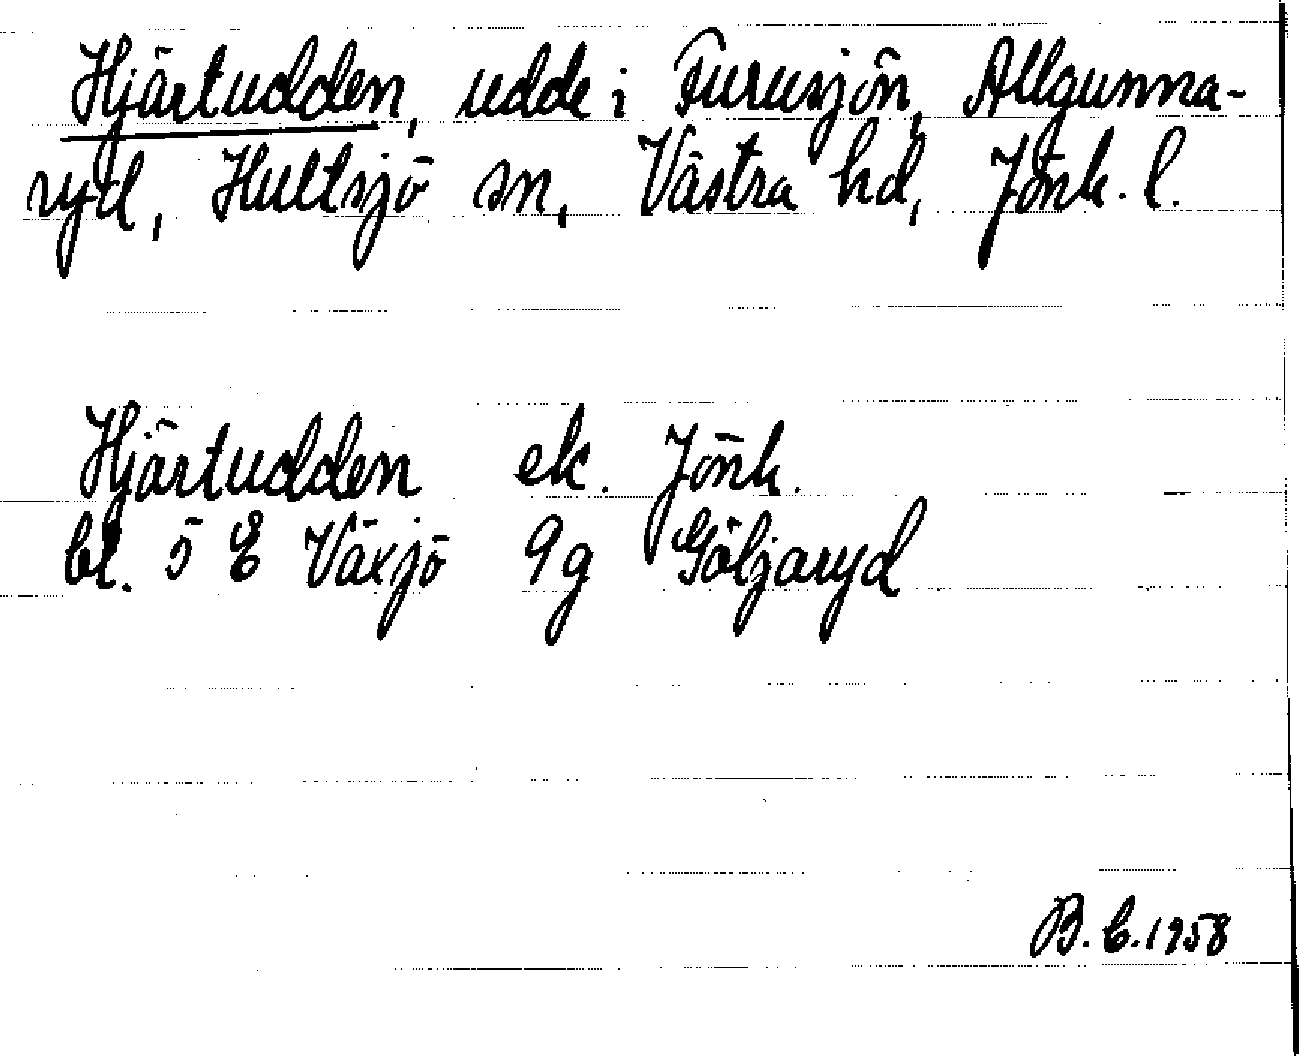 Hjärtudden, udde i Furusjön, Allgunna-
ryd, Hultsjö sn, Västra hd, Jönk. l.
Hjärtudden ek. Jönk.
bl. 5 E Växjö 9g Göljaryd
B. C. 1958